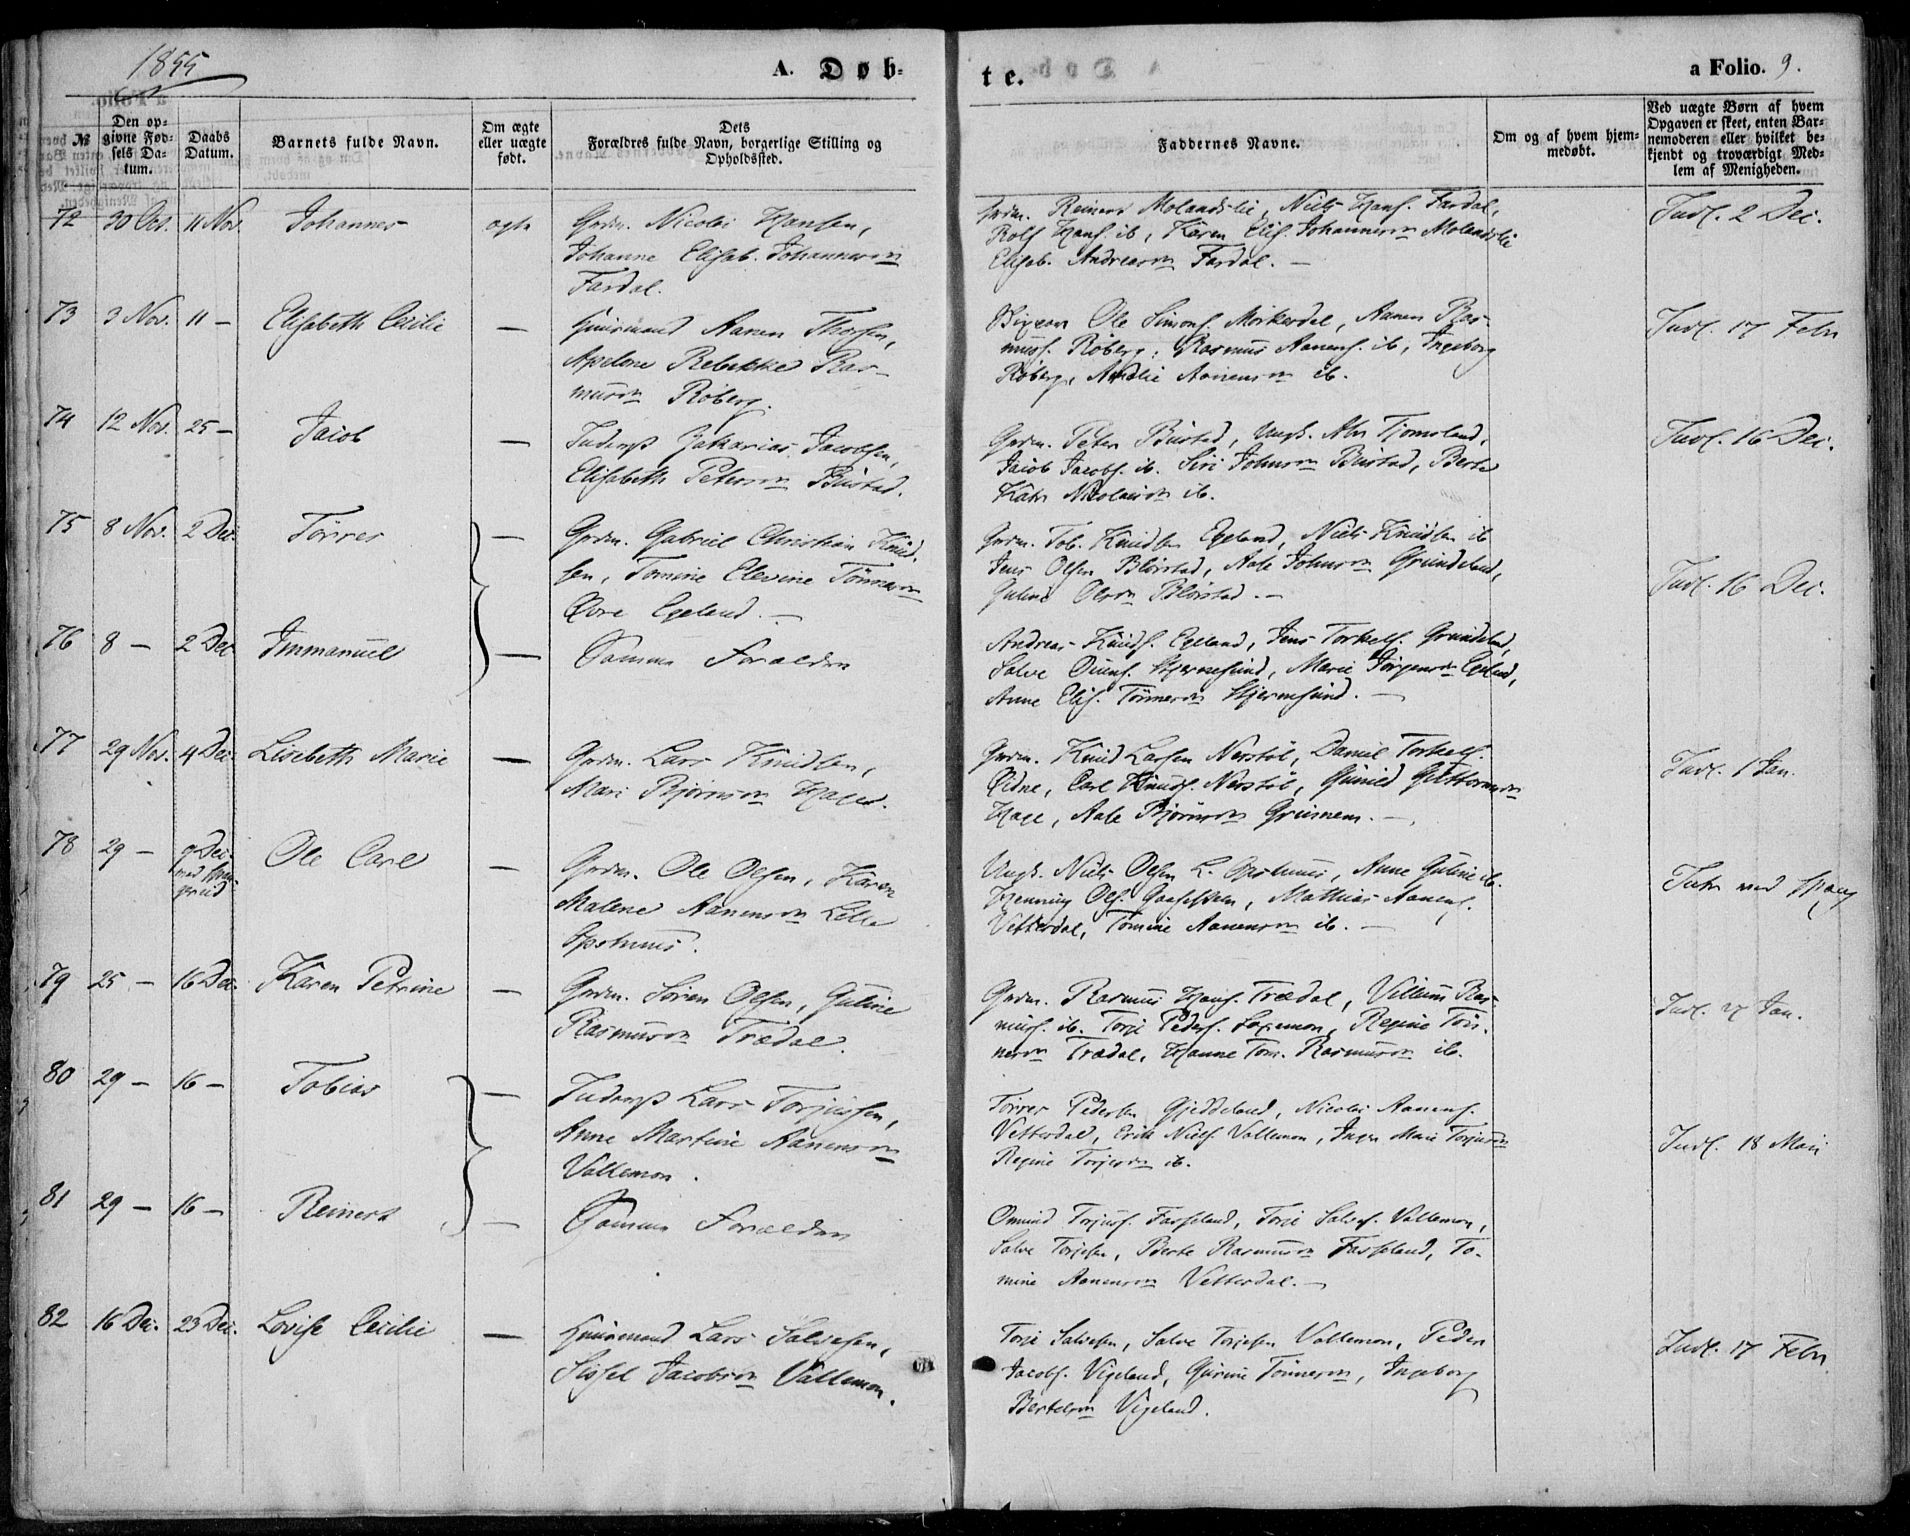 1855
A. Døb-
te.
a Folio. 9.
№
Den op-
givne Fød-
sels Da-
tum.
Daabs
Datum.
Barnets fulde Navn.
Om ægte
eller uægte
født.
Dets
Forældres fulde Navn, borgerlige Stilling og
Opholdssted.
Faddernes Navne.
Om og af hvem hjem-
medøbt.
Ved uægte Børn af hvem
Opgaven er skeet, enten Bar-
nemoderen eller hvilket be-
kjendt og troværdigt Med-
lem af Menigheden.
72 30 Oct. 11 Nov Johannes ægte
Grdm. Nicolai Hansen,
Johanne Elisab. Johannesdn
Fardal.
Grdm. Reinert Molandslie, Niels Hans. Fardal,
Rolf Hans. ib, Karen Elis. Johannesdn Molandslie
Elisab. Andreasdn Fardal. —
Indl. 2 Dec.
73 3 Nov. 11 — Elisabeth Cecilie —
Huusmand Aanen Thorsen,
Apelone Rebekke Ras-
musdn Röberg.
Ole Simons. Mörkerdal, Aanen Ras-
muss. Röberg, Rasmus Aanens. ib, Ingeborg
Röberg, Amalie Aanensdn ib.
Indl. 17 Febr
74 12 Nov. 25 — Jacob —
Inderst Zakarias Jacobsen,
Elisabeth Petersdn Bustad.
Grdm. Peter Bustad, Ungk. Abr Tjomsland,
Jacob Jacobs. ib. Siri Johnsdn Bustad, Berte
Katr Nicolaisdn ib.
Indl. 16 Dec.
75 8 Nov. 2 Dec Törres —
Grdm. Gabriel Christian Knud-
sen, Tomine Elevine Tönnesdn
Øvre Egeland. —
Grdm. Tob. Knudsen Egeland, Niels Knudsen ib
Jens Olsen Blörstad, Aale Johnsdn Grundeland,
Guline Olsdn Blörstad. —
Indl. 16 Dec.
76 8 — 2 Dec Immanuel —
Samme Forældre
Andreas Knuds. Egeland, Jens Torkels. Grundeland,
Salve Stjernesund, Marie Jörgensdn Egeland,
Anne Elis. Tönnesdn Stjernesund. —
77 29 Nov. 4 Dec. Lisebeth Marie —
Grdm. Lars Knudsen,
Mari Björnsdn Hage.
Grdm. Knud Larsen Nerstöl, Daniel Torkels.
Ødne, Carl Knuds. Nerstöl, Gunild Guttormsdn
Hage, Aale Björnsdn Griimen. —
Indl. 1 Jan.
78 29 — 9 Dec.
Ole Carl —
Grdm. Ole Olsen, Karen
Malene Aanensdn Lille
Opstuus.
Ungk. Niels Olsen L. Opstuus, Anne Guline ib.
Henning Ols. Mathias Aanens.
Vetterdal, Tomine Aanensdn ib. —
79 25 — 16 Dec. Karen Petrine —
Grdm. Sören Olsen, Guline
Rasmusdn Trædal.
Grdm. Rasmus Hans. Trædal, Villum Ras-
muss. ib. Torje Peders. Regine Tön-
nesdn Trædal, Hanne Tom. Rasmusdn ib.
Indl. 27 Jan.
80 29 — 16 — Tobias —
Inderst Lars Torjusen,
Anne Martine Aanensdn
Vallemon.
Törres Pedersen Gjeddeland, Nicolai Aanens.
Vetterdal, Erik Niels. Vallemon, Inger Marie Torjusdn
Regine Torjesdn ib.
Indl. 18 Mai
81 29 — 16 — Reinert —
Samme Forældre
Omund Torjus. Fasseland, Torje Salves. Vallemon,
Salve Torjesen, Berte Rasmusdn Fasseland, To-
mine Aanensdn Vetterdal. —
82 16 Dec. 23 Dec. Lovise Cecilie —
Huusmand Lars Salvesen,
Sissel Jacobsdn Vallemon.
Torje Salvesen, Salve Torjesen Vallemon, Peder
Jacobs. Vigeland, Gurine Tönnesdn, Ingeborg
Bertelsdn Vigeland.
Indl. 17 Febr